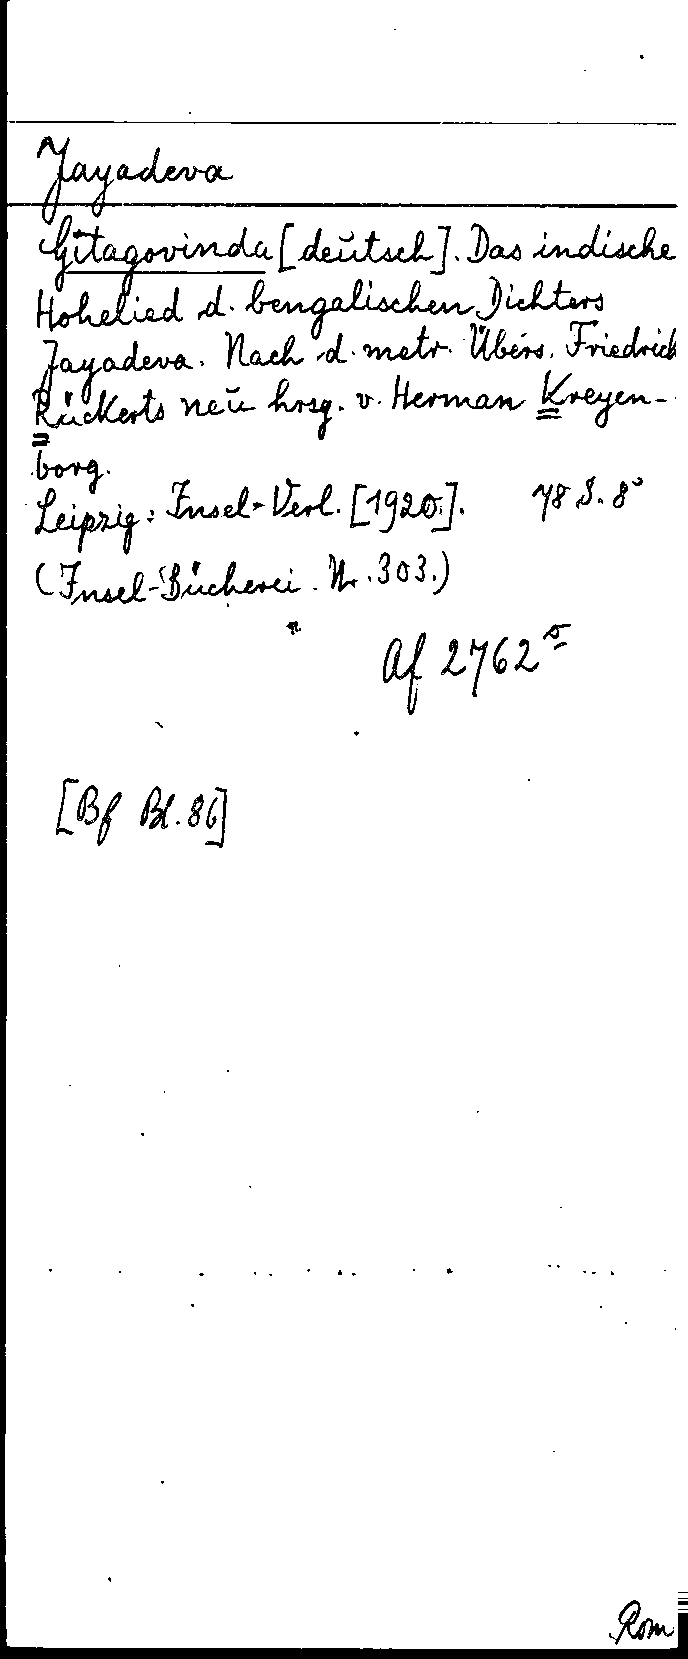 Jayadeva
Gītagovinda [deutsch]. Das indische
Hohelied d. bengalischen Dichters
Jayadeva. Nach d. metr. Übers. Friedrich
Rückerts neu hrsg. v. Herman Kreyen-
borg.
Leipzig: Insel-Verl. [1920]. 78 S. 8°
(Insel-Bücherei. Nr. 303.)
Af 2762
[Bf Bl. 86]
Rom